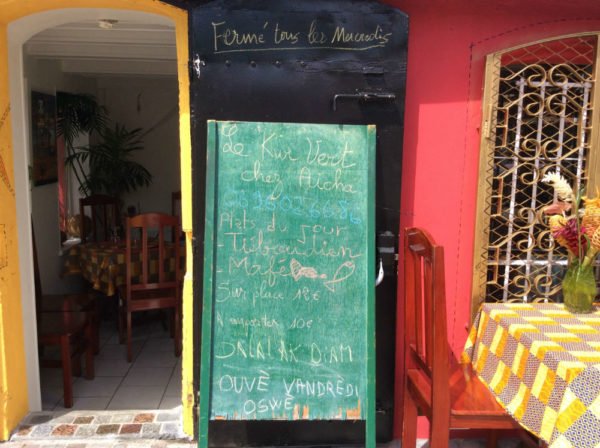 Fermé tous les Mercredis
Le Kiwi Vert
chez Aïcha
Plats du jour
- Tiéboudien
- Mafé
Sur place 18€
A emporter 10€
DALAL AK DIAM
OUVÈ VANDRÈDI
OSWÈ